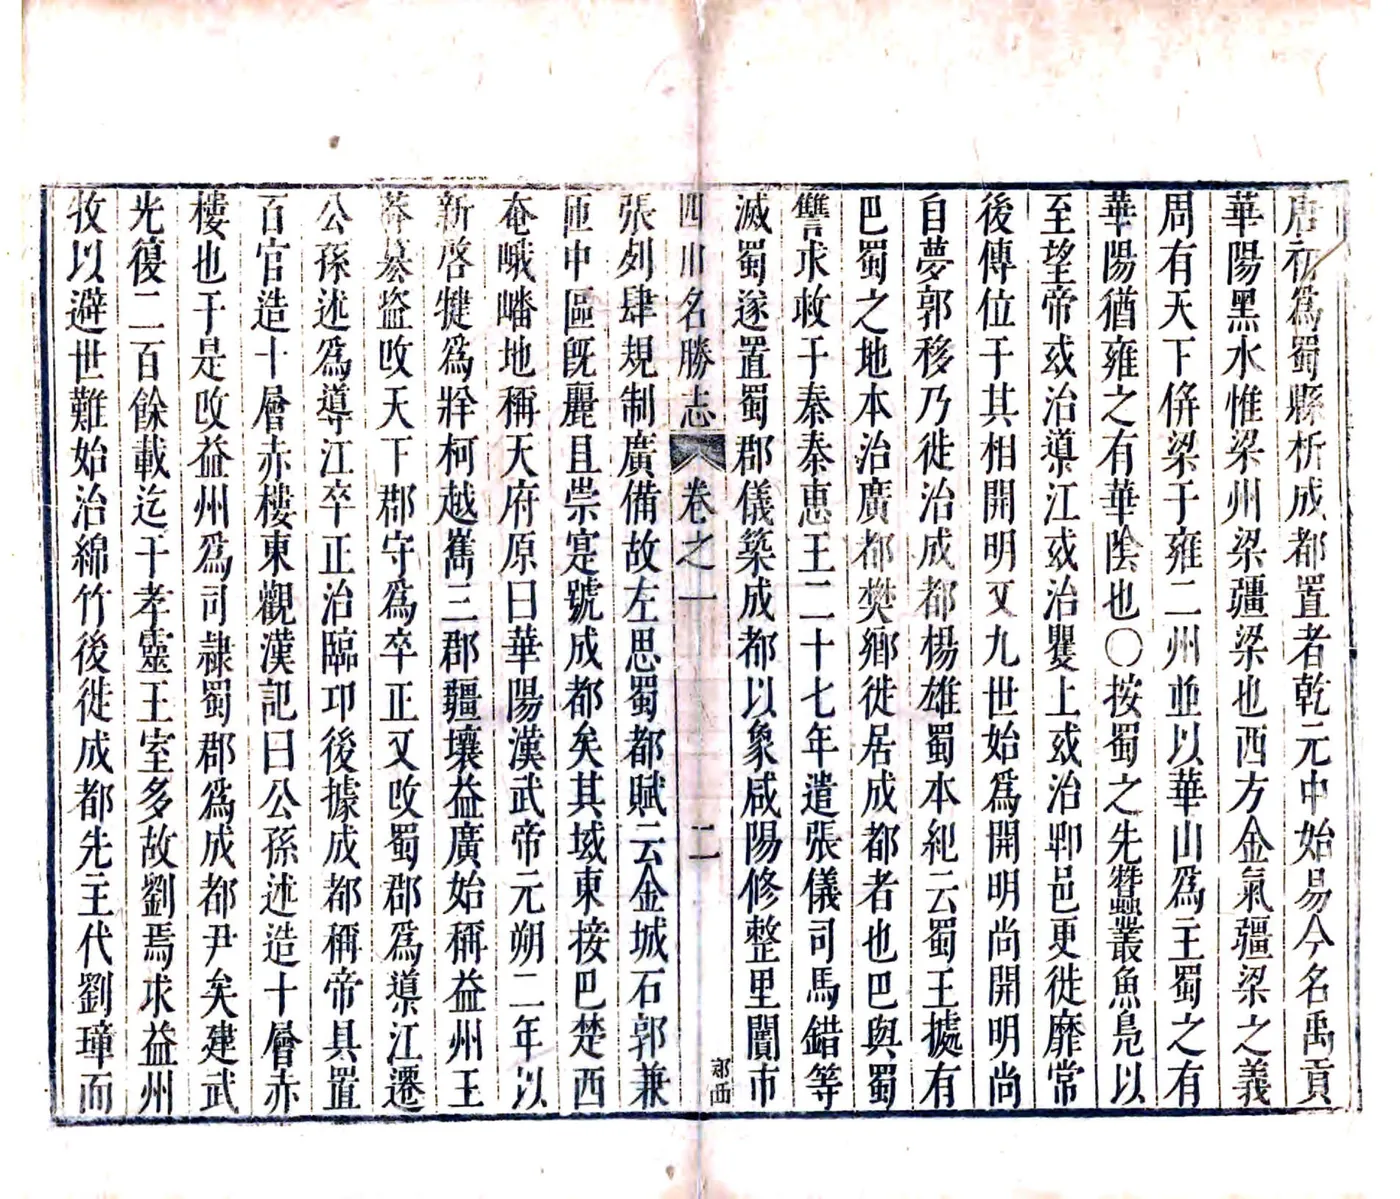 唐初爲蜀縣析成都置者乾元中始易今名禹貢
華陽黑水惟梁州梁疆梁也西方金氣疆梁之義
周有天下併梁于雍二州並以華山爲主蜀之有
華陽猶雍之有華陰也〇按蜀之先蠶叢魚鳧以
至望帝或治導江或治瞿上或治郫邑更徙靡常
後傳位于其相開明又九世始爲開明尚開明尚
自夢郭移乃徙治成都楊雄蜀本紀云蜀王據有
巴蜀之地本治廣都樊鄉徙居成都者也巴與蜀
讐求救于秦秦惠王二十七年遣張儀司馬錯等
滅蜀遂置蜀郡儀築成都以象咸陽修整里闠市
四川名勝志 卷之一 二
張列肆規制廣備故左思蜀都賦云金城石郭兼
匝中區旣麗且崇寔號成都矣其域東接巴楚西
奄峨嶓地稱天府原曰華陽漢武帝元朔二年以
新啓犍爲牂柯越嶲三郡疆壤益廣始稱益州王
莽簒盜改天下郡守爲卒正又改蜀郡爲導江遷
公孫述爲導江卒正治臨邛後據成都稱帝具置
百官造十層赤樓東觀漢記曰公孫述造十層赤
樓也于是改益州爲司隷蜀郡爲成都尹矣建武
光復二百餘載迄于孝靈王室多故劉焉求益州
牧以避世難始治綿竹後徙成都先主代劉璋而